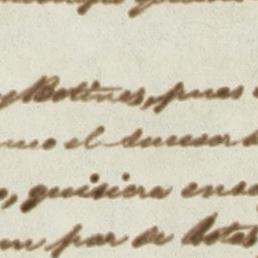 y Botines, pues
mo el sucesor
, quisiera ensa
un par de botas